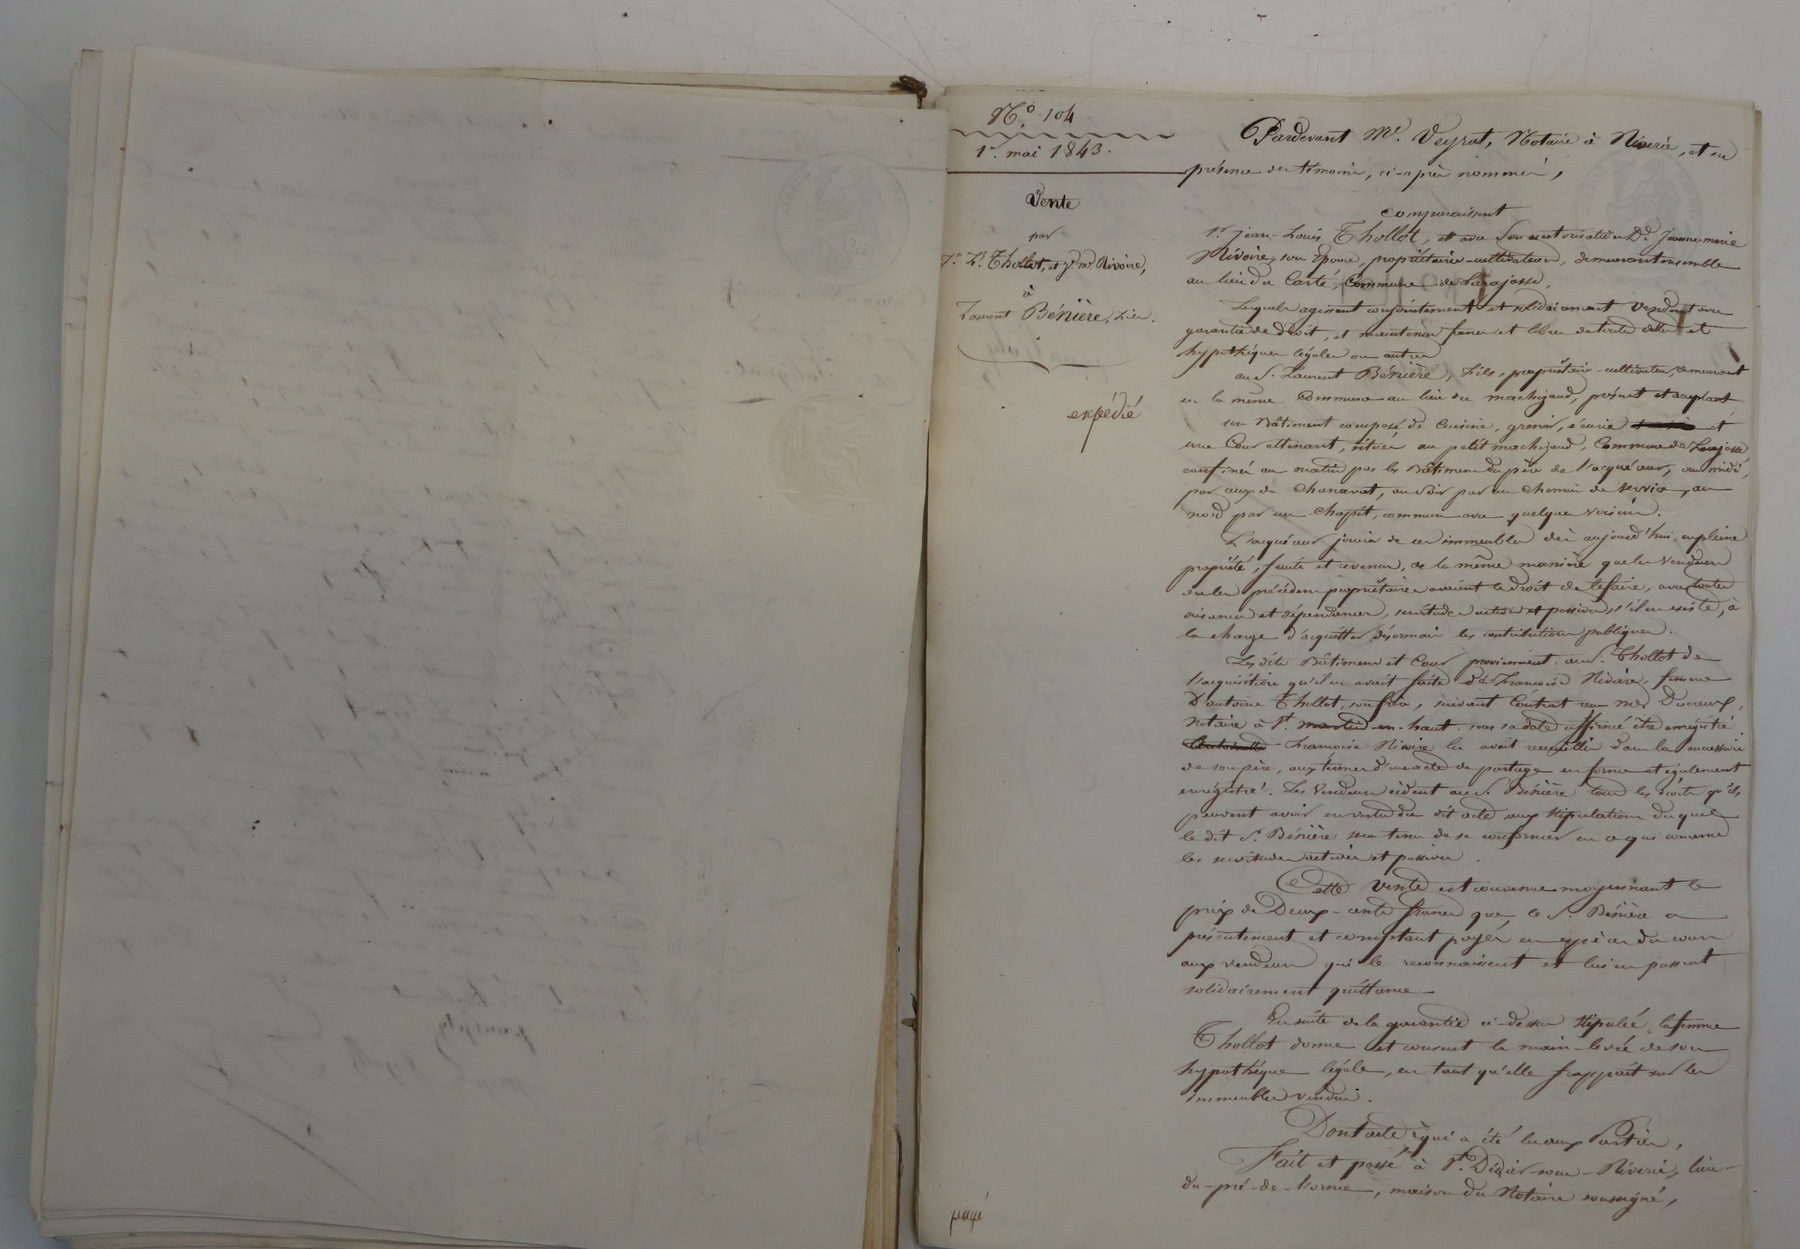 N.° 104
1.er mai 1843.
Vente
par
J.n L.s Thollot, et J.ne m.ie Rivoire,
à
Laurent Bénière, fils.
expédié
Pardevant M.e Veyrat, Notaire à Riverie, et en
présence des témoins, ci-après nommés,
comparaissent
S.r Jean-Louis Thollot, et avec son autorisation D.e Jeanne marie
Rivoire, son épouse, propriétaires-cultivateurs, demeurant ensemble
au lieu du Carté, Commune de Larajasse,
Lesquels agissant conjointement et solidairement Vendent avec
garantie de droit, et maintenue francs et libres de toutes dettes et
hypothèques légales ou autres
au S.r Laurent Bénière, fils, propriétaire-cultivateur, demeurant
en la même Commune au lieu du machizaud, présent et acceptant
un Bâtiment composé de Cuisine, grenier, écurie et
une Cour attenant, situés au petit machizaud, Commune de Larajasse,
confinés au matin par les Bâtiments du père de l'acquéreur, au midi,
par ceux de Chanavat, au soir par un chemin de service, au
nord par un chapit, commun avec quelques voisins.
L'acquéreur jouira de ces immeubles dès aujourd'hui, en pleine
propriété, fruits et revenus, de la même manière que les Vendeurs
ou les précédens propriétaires avaient le droit de le faire, avec toutes
aisances et dépendances, servitudes actives et passives, s'il en existe, à
la charge d'acquitter désormais les contributions publiques.
Les dits Bâtimens et Cour proviennent au S.r Thollot de
l'acquisition qu'il en avait faite de Françoise Rivoire, femme
D'antoine Thollot, son frère, suivant Contrat reçu M.e Ducreux,
Notaire à S.t martin-en-haut, sous sa date affirmé être enregistré
Françoise Rivoire les avait recueillis dans la succession
de son père, aux termes d'un acte de partage en forme et également
enregistré. Les Vendeurs cèdent au S.r Bénière tous les droits qu'ils
peuvent avoir en vertu du dit acte, aux stipulations duquel
le dit S.r Bénière sera tenu de se conformer en ce qui concerne
les servitudes actives et passives.
Cette Vente est convenue moyennant le
prix de Deux-cents francs que le S.r Bénière a
présentement et comptant payés en espèces du cours
aux vendeurs qui le reconnaissent et lui en passent
solidairement quittance -
En suite de la garantie ci-dessus stipulée, la femme
Thollot donne et consent la main-levée de son
hypothèque légale, en tant qu'elle frappait sur les
immeubles vendus.
Dont acte, qui a été lu aux Parties,
Fait et passé à S.t Didier-sous-Riverie, lieu
du-pré-de-l'orme, maison du Notaire soussigné,